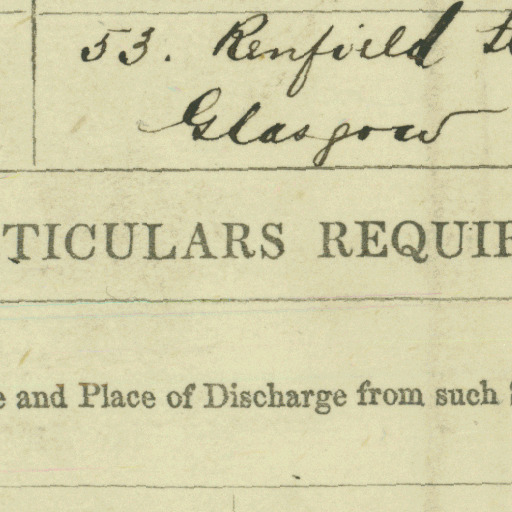 53. Renfield
Glasgow
TICULARS REQUIR
e and Place of Discharge from such